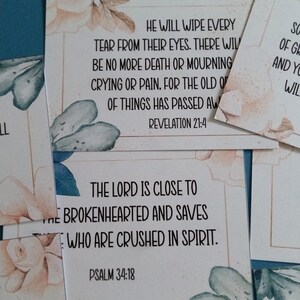 HE WILL WIPE EVERY
TEAR FROM THEIR EYES. THERE WILL
BE NO MORE DEATH OR MOURNING
CRYING OR PAIN, FOR THE OLD O
OF THINGS HAS PASSED AW
REVELATION 21:4
SO
OF GL
AND YO
WIL
LL
THE LORD IS CLOSE TO
THE BROKENHEARTED AND SAVES
WHO ARE CRUSHED IN SPIRIT.
PSALM 34:18